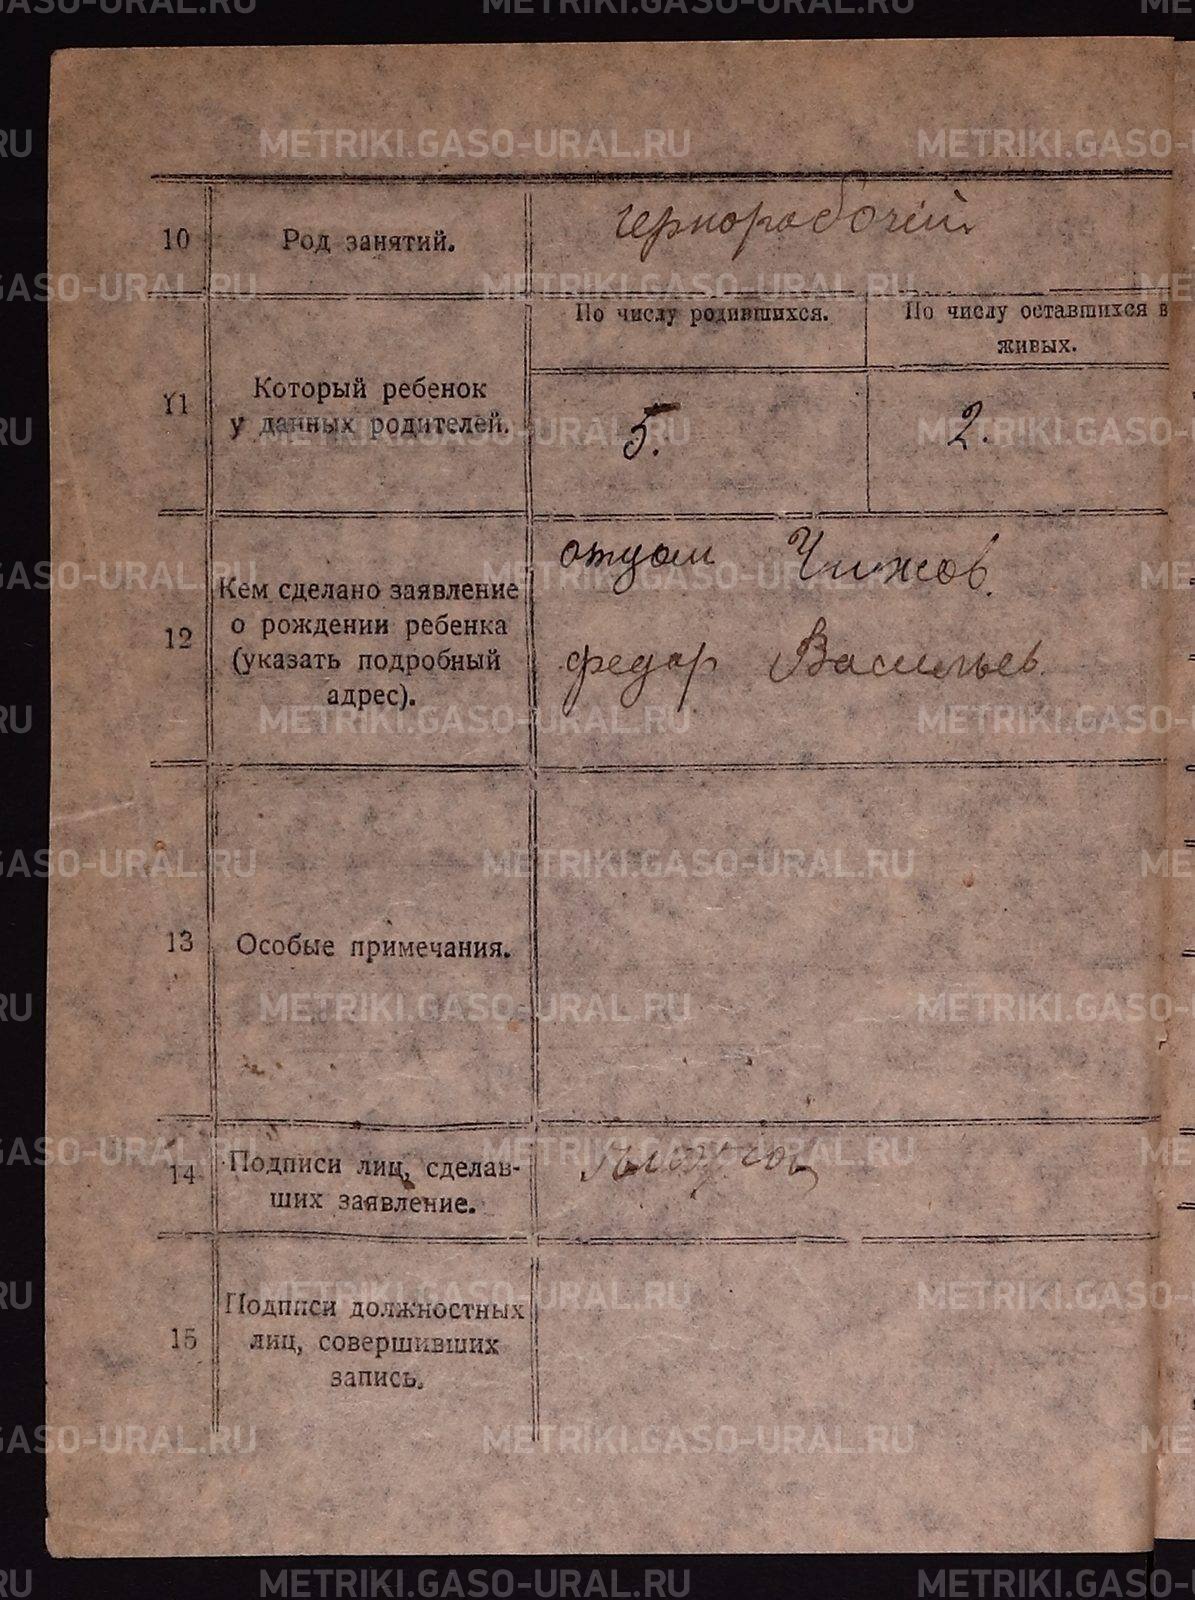 10 Род занятий. чернорабочий
По числу родившихся. По числу оставшихся в
живых.
11 Который ребенок
у данных родителей. 5. 2.
12 Кем сделано заявление
о рождении ребенка
(указать подробный
адрес).
отцом Чижов.
федор Васильев.
13 Особые примечания.
14 Подписи лиц, сделав-
ших заявление.
15 Подписи должностных
лиц, совершивших
запись.
METRIKI.GASO-URAL.RU